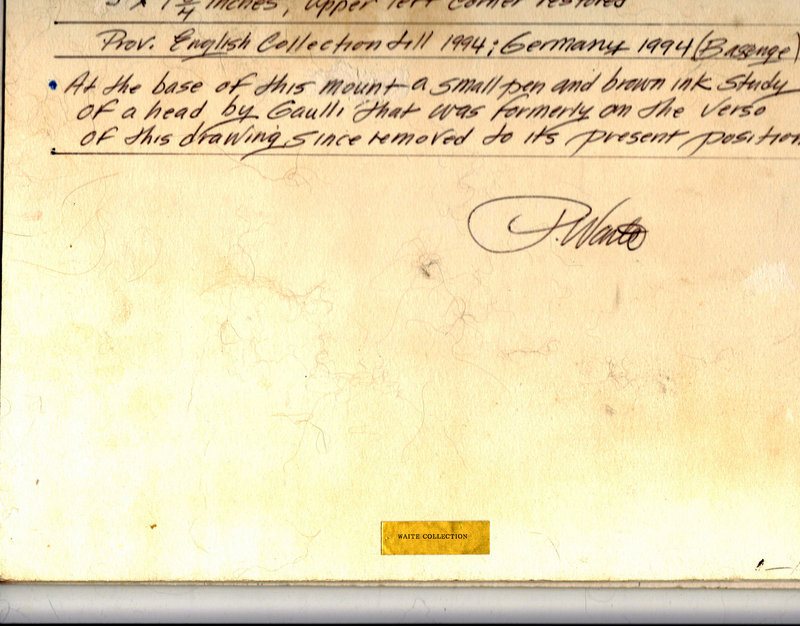 inches, upper left corner restored
Prov. English Collection till 1994; Germany 1994 (Bassenge)
• At the base of this mount a small pen and brown ink study
of a head by Gaulli that was formerly on the verso
of this drawing since removed to its present position
P. Waite
WAITE COLLECTION